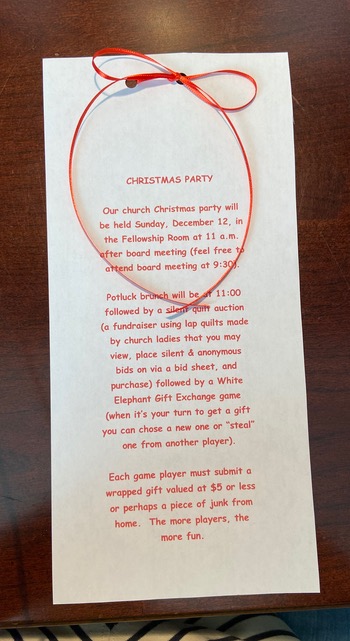 CHRISTMAS PARTY
Our church Christmas party will
be held Sunday, December 12, in
the Fellowship Room at 11 a.m.
after board meeting (feel free to
attend board meeting at 9:30).
Potluck brunch will be at 11:00
followed by a silent quilt auction
(a fundraiser using lap quilts made
by church ladies that you may
view, place silent & anonymous
bids on via a bid sheet, and
purchase) followed by a White
Elephant Gift Exchange game
(when it's your turn to get a gift
you can chose a new one or "steal"
one from another player).
Each game player must submit a
wrapped gift valued at $5 or less
or perhaps a piece of junk from
home. The more players, the
more fun.